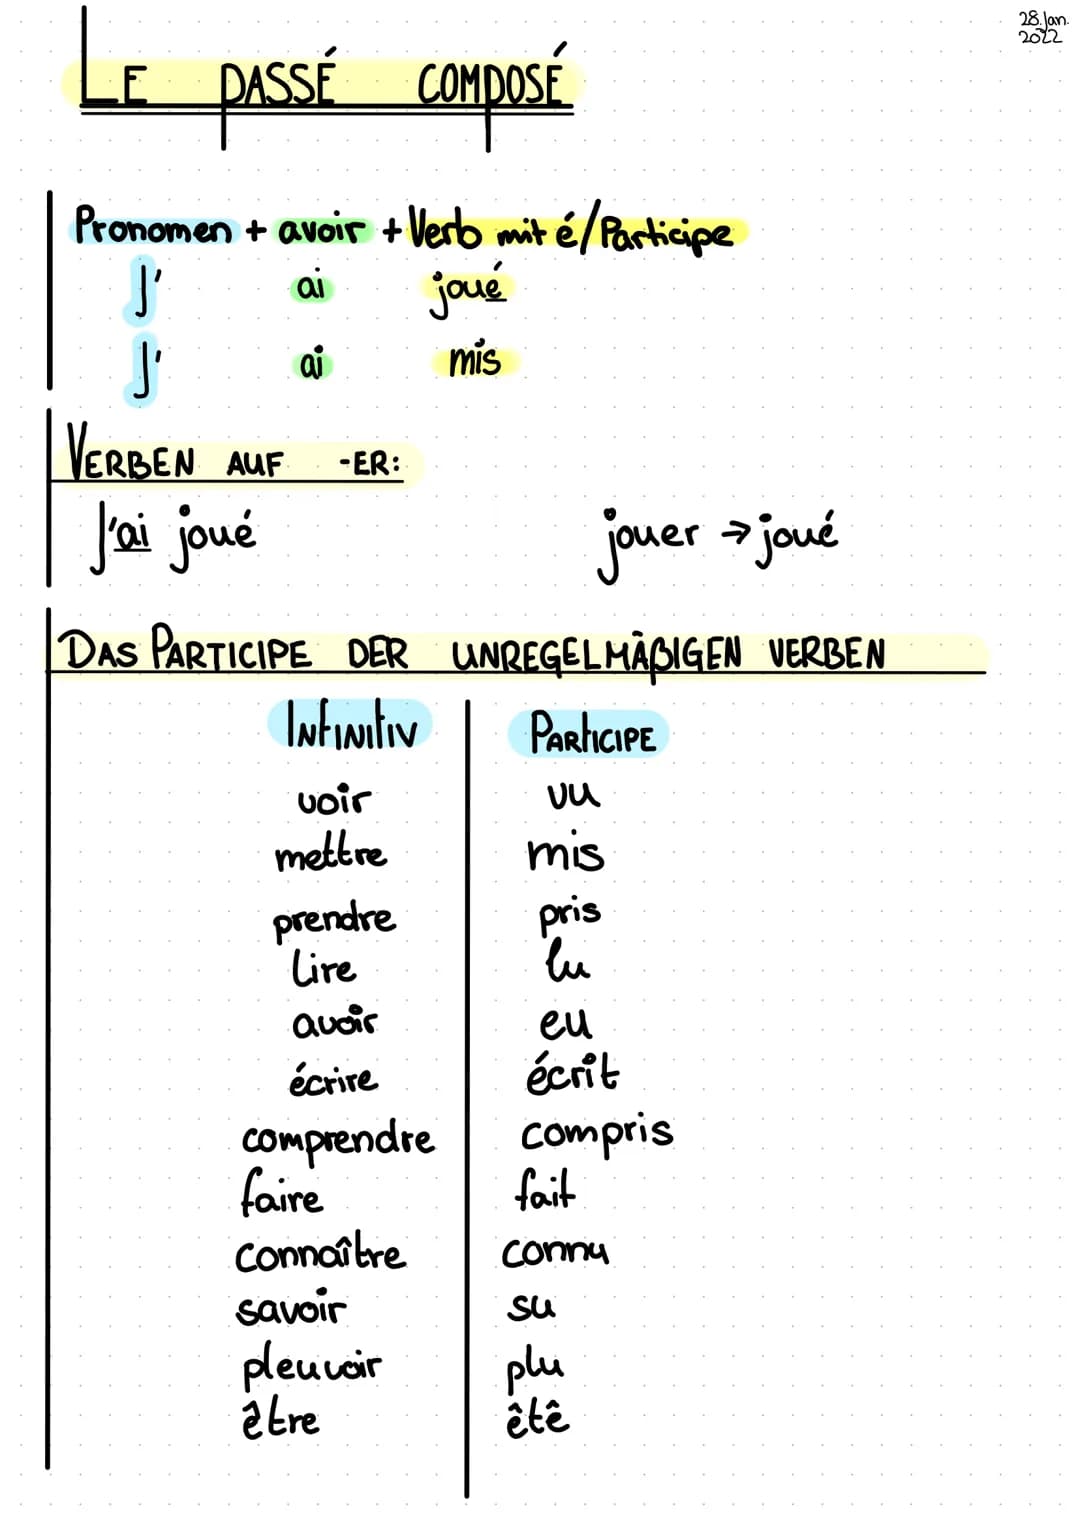 28.Jan.
2022
LE PASSÉ COMPOSÉ
Pronomen + avoir + Verb mit é/Participe
J' ai joué
J' ai mis
VERBEN AUF -ER:
J'ai joué jouer → joué
DAS PARTICIPE DER UNREGELMÄßIGEN VERBEN
INFINITIV PARTICIPE
voir vu
mettre mis
prendre pris
lire lu
avoir eu
écrire écrit
comprendre compris
faire fait
connaître connu
savoir su
pleuvoir plu
être êtê